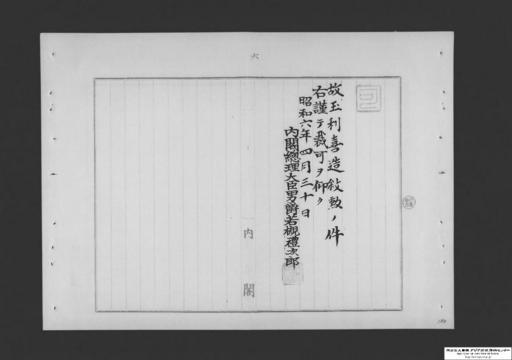 六
故玉利喜造敍勲ノ件
右謹テ裁可ヲ仰ク
昭和六年四月三十日
内閣總理大臣男爵若槻禮次郎
内閣